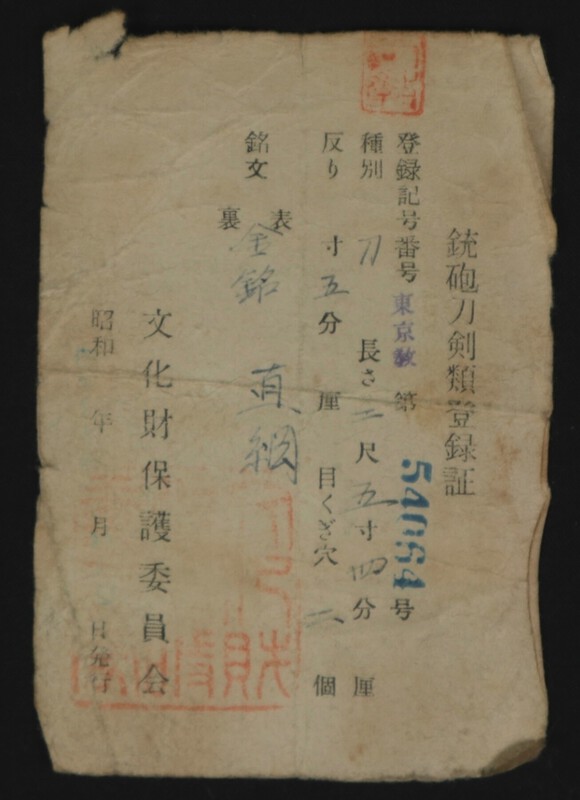 銃砲刀剣類登録証
登録記号番号 東京教 第 54064 号
種別 刀 長さ 二尺五寸四分 厘
反り 寸五分 厘 目くぎ穴 二 個
銘文 表 金銘 真綱
裏
文化財保護委員会
昭和 年 月 日発行